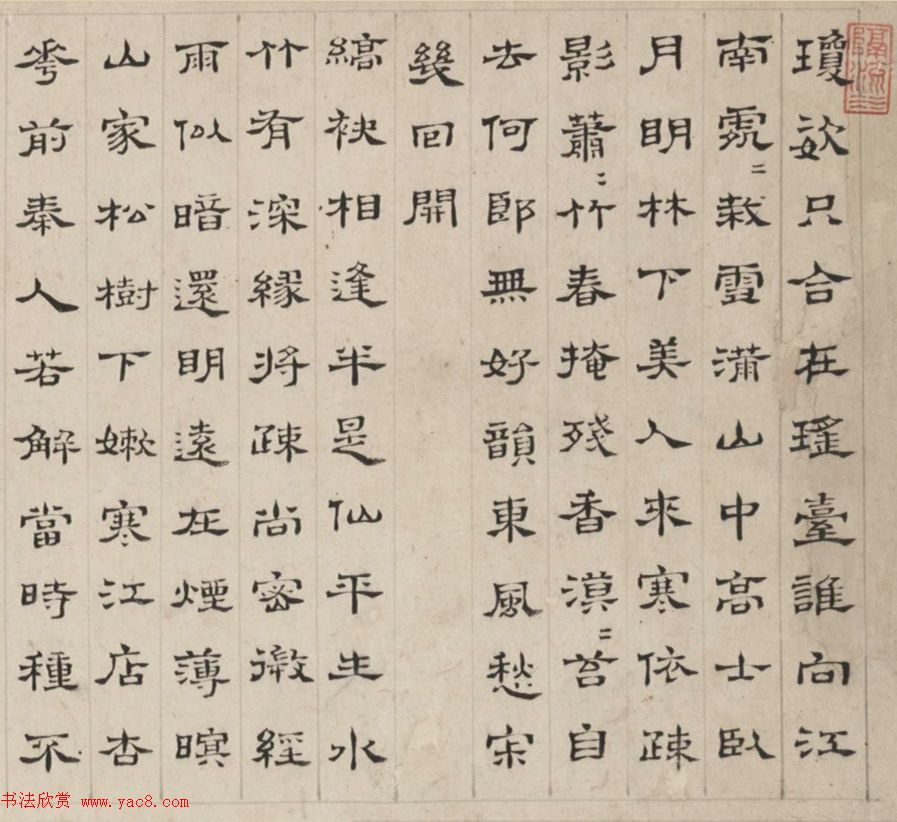 瓊姿只合在瑤臺誰向江
南霓〻栽雪滿山中高士臥
月明林下美人來寒依疎
影蕭〻竹春掩殘香漠〻苔自
去何郎無好韻東風愁宋
幾回開
縞袂相逢半是仙平生水
竹有深緣將疎尚密微經
雨似暗還明遠在煙薄暝
山家松樹下嫰寒江店杏
花前秦人若解當時種不
书法欣赏 www.yac8.com